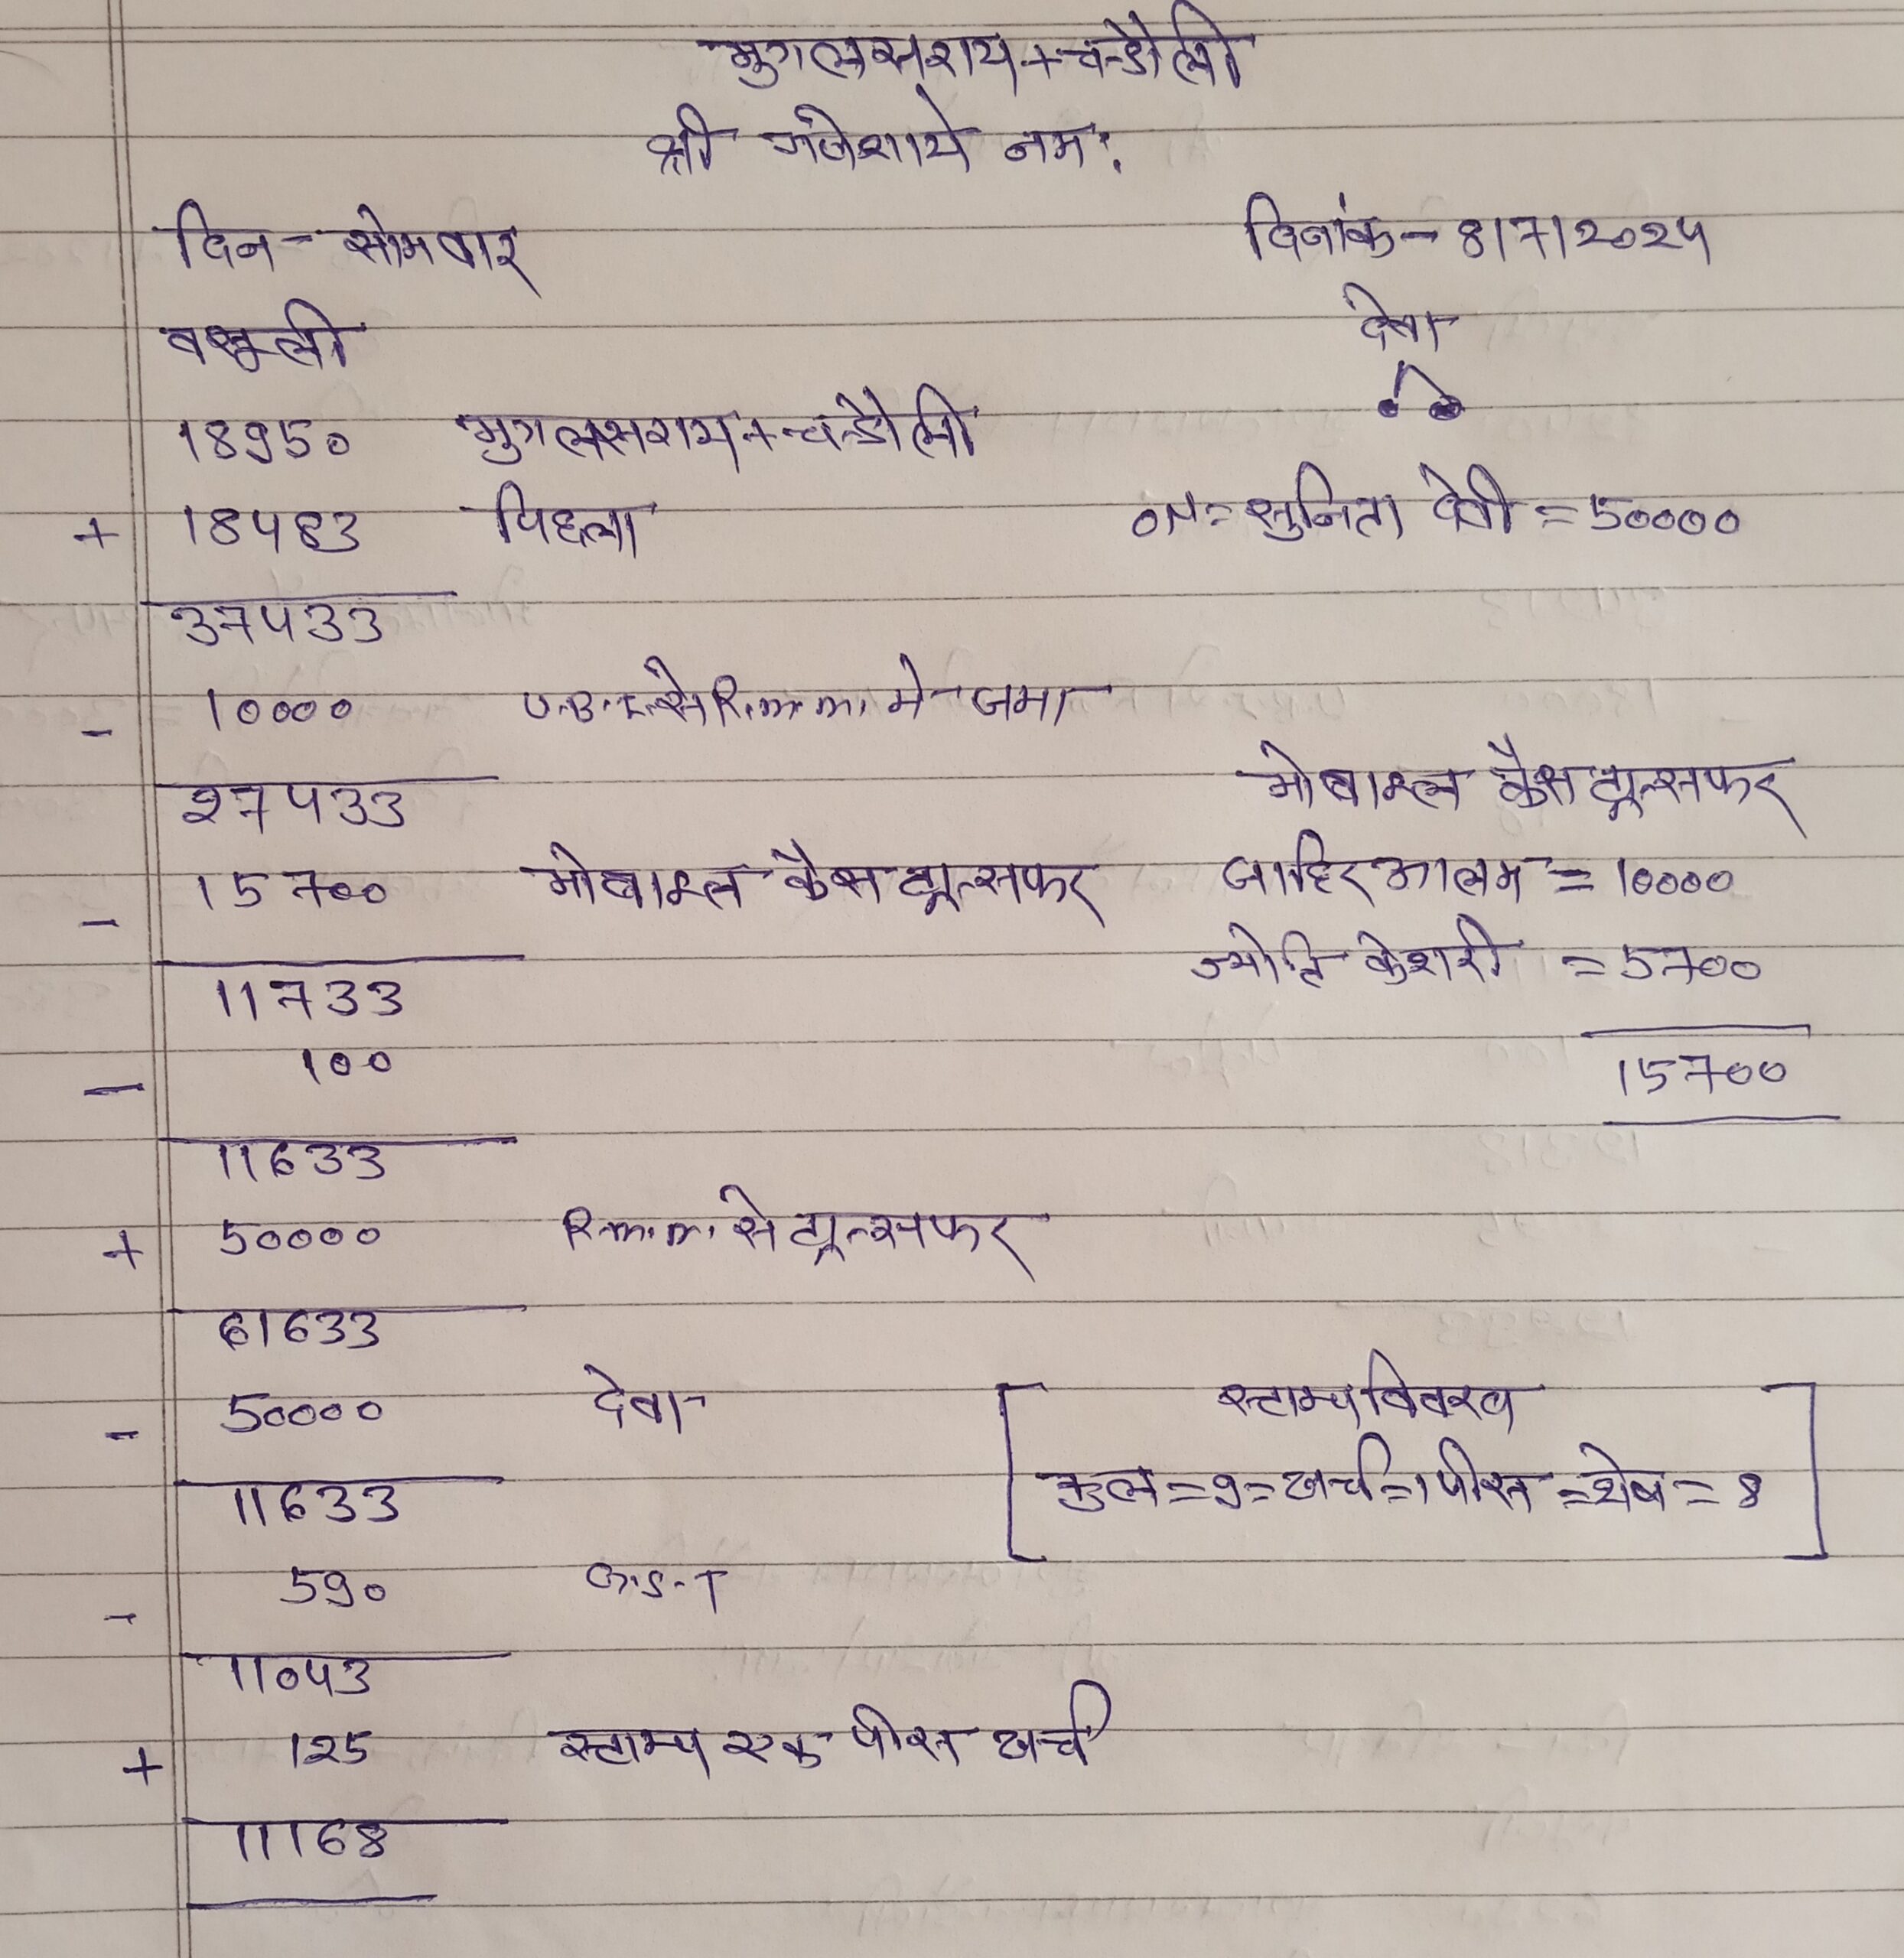 मुगलसराय + चन्डौली
श्री गंणेशाये नमः
दिन - सोमवार दिनांक - 8/7/2024
वसूली देवा
18950 मुगलसराय + चन्डौली
+ 18483 पिछला ON = सुनिता देवी = 50000
37433
- 10000 U.B.I. से R.m.m. मे जमा
27433 मोबाइल कैस ट्रान्सफर
- 15700 मोबाइल कैस ट्रान्सफर जाहिर आलम = 10000
11733 ज्योति केशरी = 5700
- 100 15700
11633
+ 50000 R.m.m. से ट्रान्सफर
61633
- 50000 देवा स्टाम्प विवरण
11633 कुल = 9 = खर्च = 1 पीस = शेष = 8
- 590 G.S.T
11043
+ 125 स्टाम्प एक पीस खर्च
11168